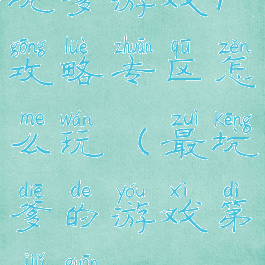 游 戏
gōng lüè zhuān qū zěn
攻 略 专 区 怎
me wán zuì kēng
么 玩 ( 最 坑
diē de yóu xì dì
爹 的 游 戏 第